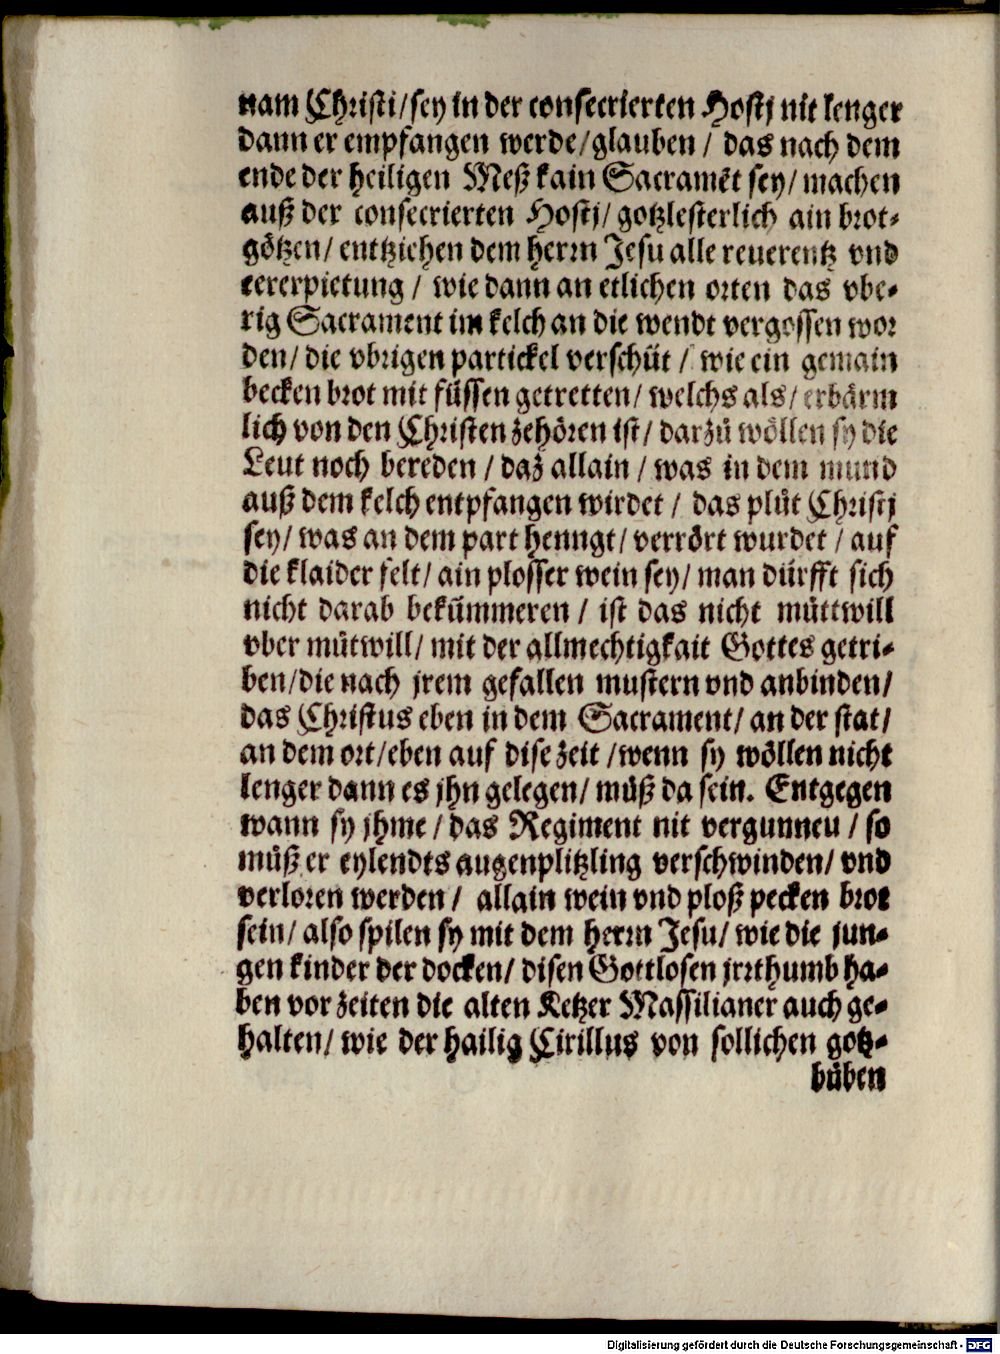 nam Christi/ sey in der consecrierten Hostj nit lenger
dann er empfangen werde/ glauben / das nach dem
ende der heiligen Meß kain Sacramēt sey/ machen
auß der consecrierten Hostj/ gotzlesterlich ain brot⸗
götzen/ enttziehen dem herrn Jesu alle reuerentz vnd
eererpietung / wie dann an etlichen orten das vbe⸗
rig Sacrament im kelch an die wendt vergossen wor
den/ die vbrigen partickel verschüt / wie ein gemain
becken brot mit füssen getretten/ welchs als/ erbärm
lich von den Christen zehören ist/ darzů wöllen sy die
Leut noch bereden / daz allain / was in dem mund
auß dem kelch entpfangen wirdet / das plůt Christj
sey/ was an dem part henngt/ verrört wurdet / auf
die klaider felt/ ain plosser wein sey/ man dürfft sich
nicht darab bekümmeren / ist das nicht můttwill
vber můtwill/ mit der allmechtigkait Gottes getri⸗
ben/ die nach jrem gefallen mustern vnd anbinden/
das Christus eben in dem Sacrament/ an der stat/
an dem ort/ eben auf dise zeit / wenn sy wöllen nicht
lenger dann es jhn gelegen/ můß da sein. Entgegen
wann sy jhme / das Regiment nit vergunneu / so
můß er eylendts augenplitzling verschwinden/ vnd
verloren werden / allain wein vnd ploß pecken brot
sein/ also spilen sy mit dem herrn Jesu/ wie die jun⸗
gen kinder der docken/ disen Gottlosen jrrthumb ha⸗
ben vor zeiten die alten Ketzer Massilianer auch ge⸗
halten/ wie der hailig Cirillus von sollichen gotz⸗
bůben
Digitalisierung gefördert durch die Deutsche Forschungsgemeinschaft - DFG